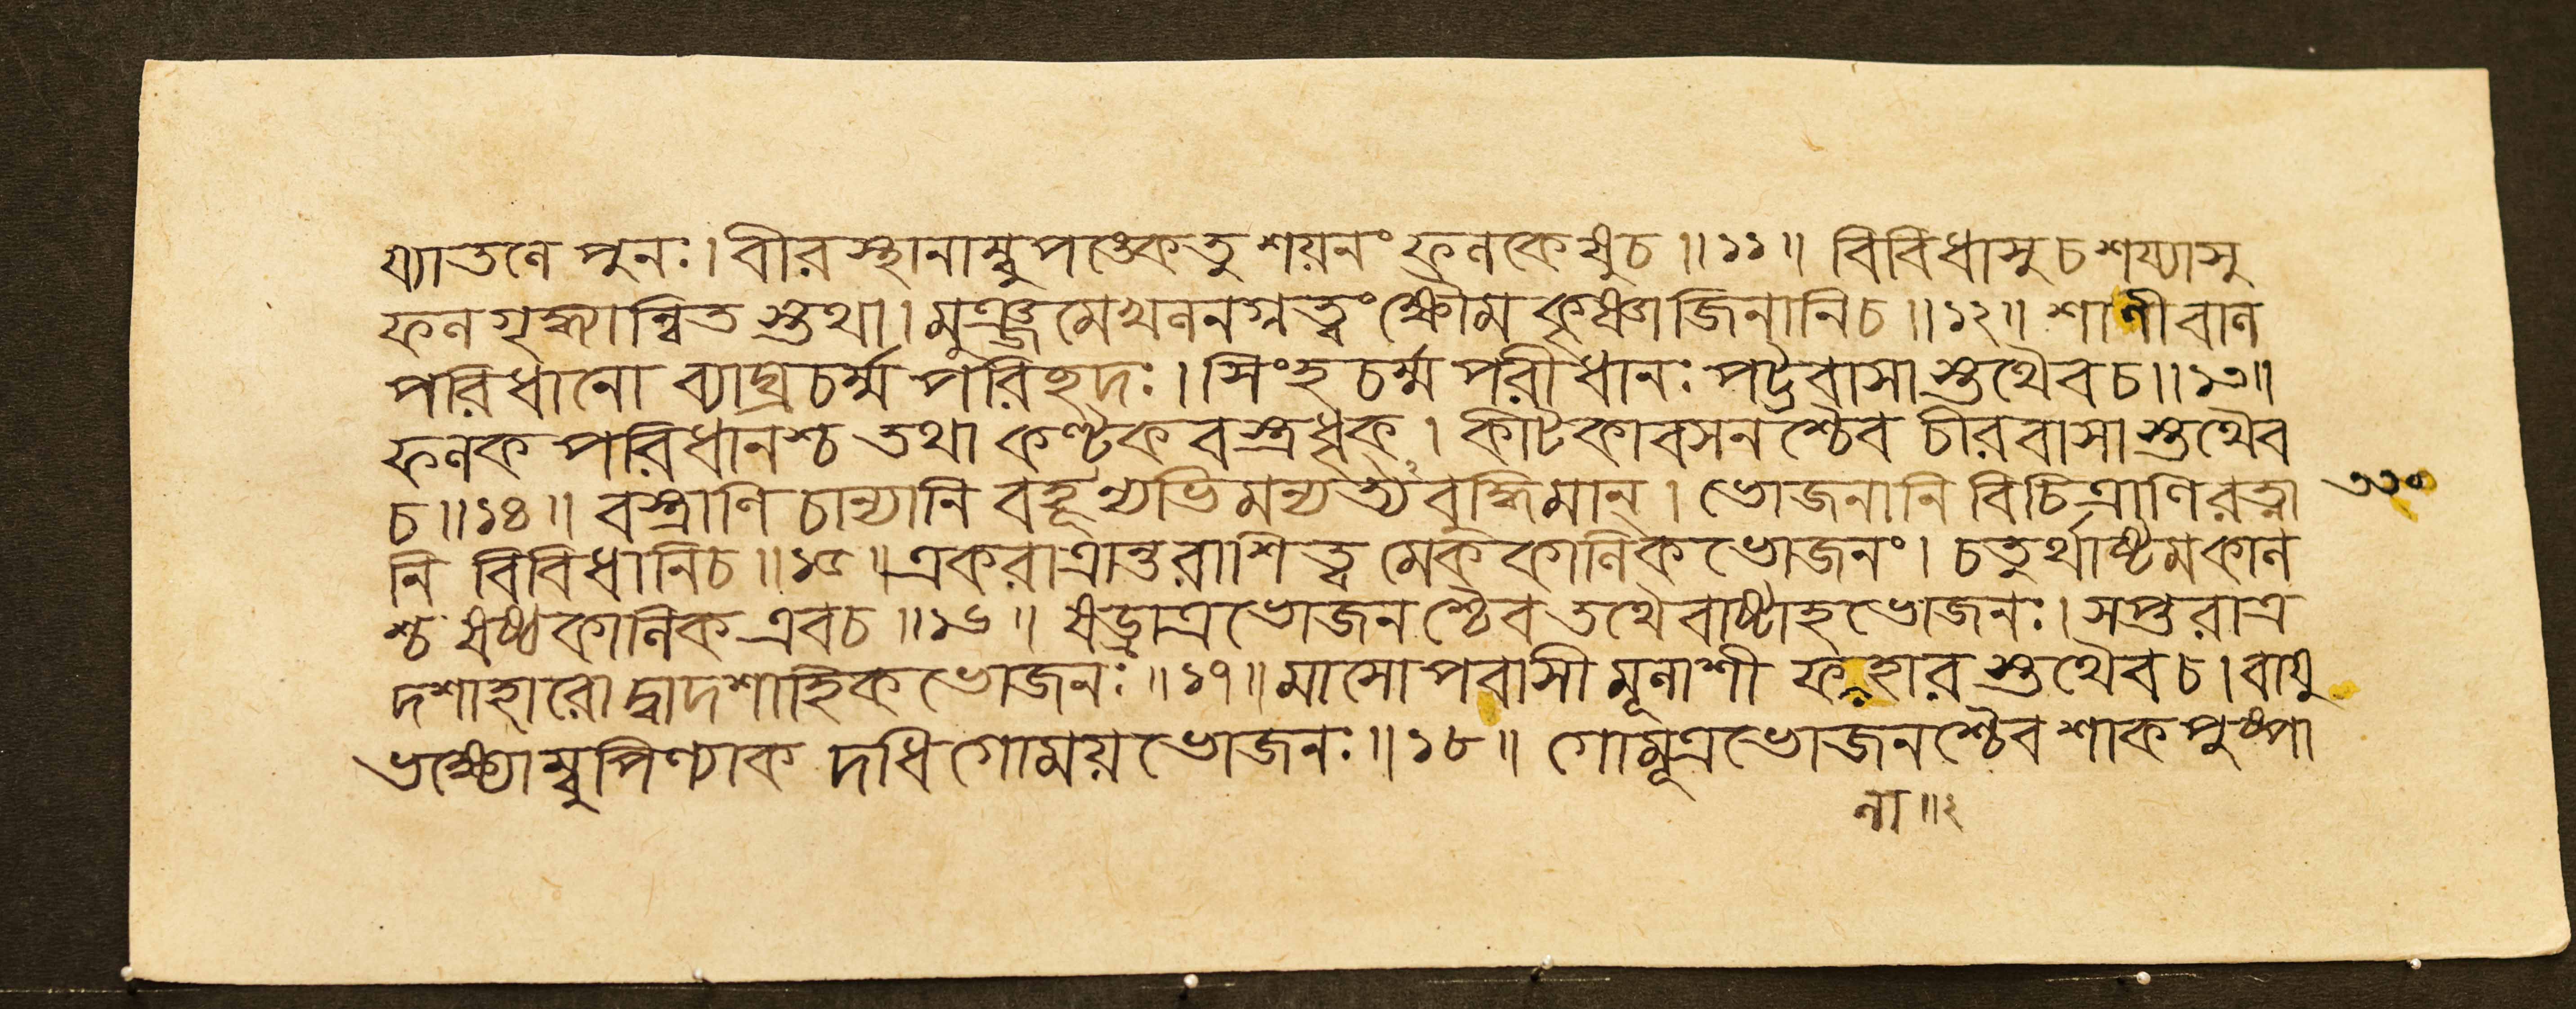 য্যাতলে পুনঃ। বীরস্থানাম্বুপঙ্কেতু শয়নং ফলকেষুচ॥১১॥ বিবিধাসু চ শয্যাসু
ফলগৃদ্ধ্যান্বিত স্তথা। মুঞ্জমেখলনগ্নত্বং ক্ষৌমকৃষ্ণাজিনানিচ॥১২॥ শাণীবাল
পরিধানো ব্যাঘ্রচর্ম্ম পরিছদঃ। সিংহ চর্ম্ম পরীধানঃ পট্টবাসা স্তথৈবচ॥১৩॥
ফলক পরিধানশ্চ তথা কণ্টকবস্ত্রধৃক্। কীটকাবসনশ্চৈব চীরবাসা স্তথৈব
চ॥১৪॥ বস্ত্রাণি চান্যানি বহূন্যভিমন্যত্য বুদ্ধিমান্। ভোজনানি বিচিত্রাণি রত্না ৩৩০
নি বিবিধানিচ॥১৫॥ একরাত্রান্তরাশিত্ব মেককালিকভোজনং। চতুর্থাষ্টমকাল
শ্চ ষষ্ঠকালিক এবচ॥১৬॥ ষড্রাত্রভোজনশ্চৈব তথৈবাষ্টাহভোজনঃ। সপ্তরাত্র
দশাহারো দ্বাদশাহিকভোজনঃ॥১৭॥ মাসোপবাসী মূলাশী ফলাহার স্তথৈবচ। বায়ু
ভক্ষ্যোম্বুপিণ্যাক দধি গোময়ভোজনঃ॥১৮॥ গোমূত্রভোজনশ্চৈব শাকপুষ্পা
লা॥২